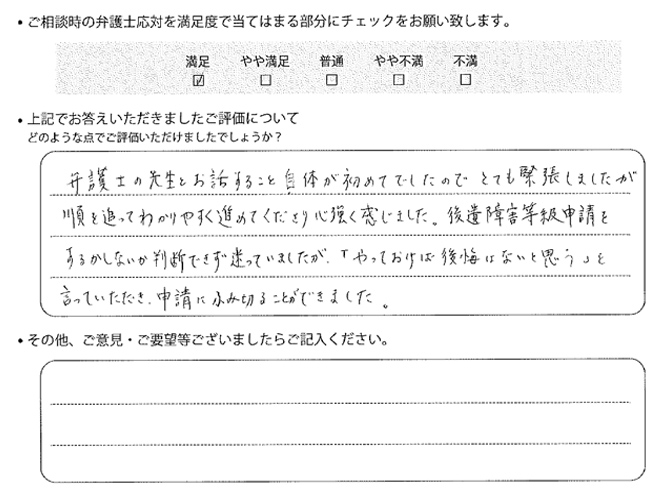 • ご相談時の弁護士応対を満足度で当てはまる部分にチェックをお願い致します。
満足 やや満足 普通 やや不満 不満
☑ □ □ □ □
• 上記でお答えいただきましたご評価について
どのような点でご評価いただけましたでしょうか？
弁護士の先生とお話すること自体が初めてでしたのでとても緊張しましたが
順を追ってわかりやすく進めてくださり心強く感じました。後遺障害等級申請を
するかしないか判断できず迷っていましたが、「やっておけば後悔はないと思う」と
言っていただき、申請にふみ切ることができました。
• その他、ご意見・ご要望等ございましたらご記入ください。